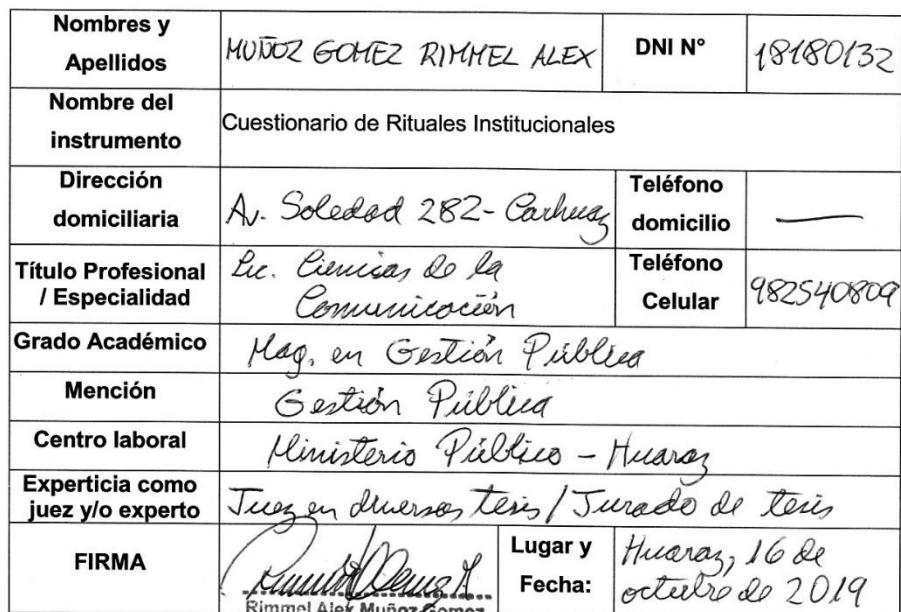 Nombres y
Apellidos
MUÑOZ GOMEZ RIMMEL ALEX
DNI N°
18180132
Nombre del
instrumento
Cuestionario de Rituales Institucionales
Dirección
domiciliaria
Av. Soledad 282 - Carhuaz
Teléfono
domicilio
Título Profesional
/ Especialidad
Lic. Ciencias de la
Comunicación
Teléfono
Celular
982540809
Grado Académico
Mag. en Gestión Pública
Mención
Gestión Pública
Centro laboral
Ministerio Público - Huaraz
Experticia como
juez y/o experto
Juez en diversos tesis / Jurado de tesis
FIRMA
Rimmel Alex Muñoz Gomez
Lugar y
Fecha:
Huaraz, 16 de
octubre de 2019